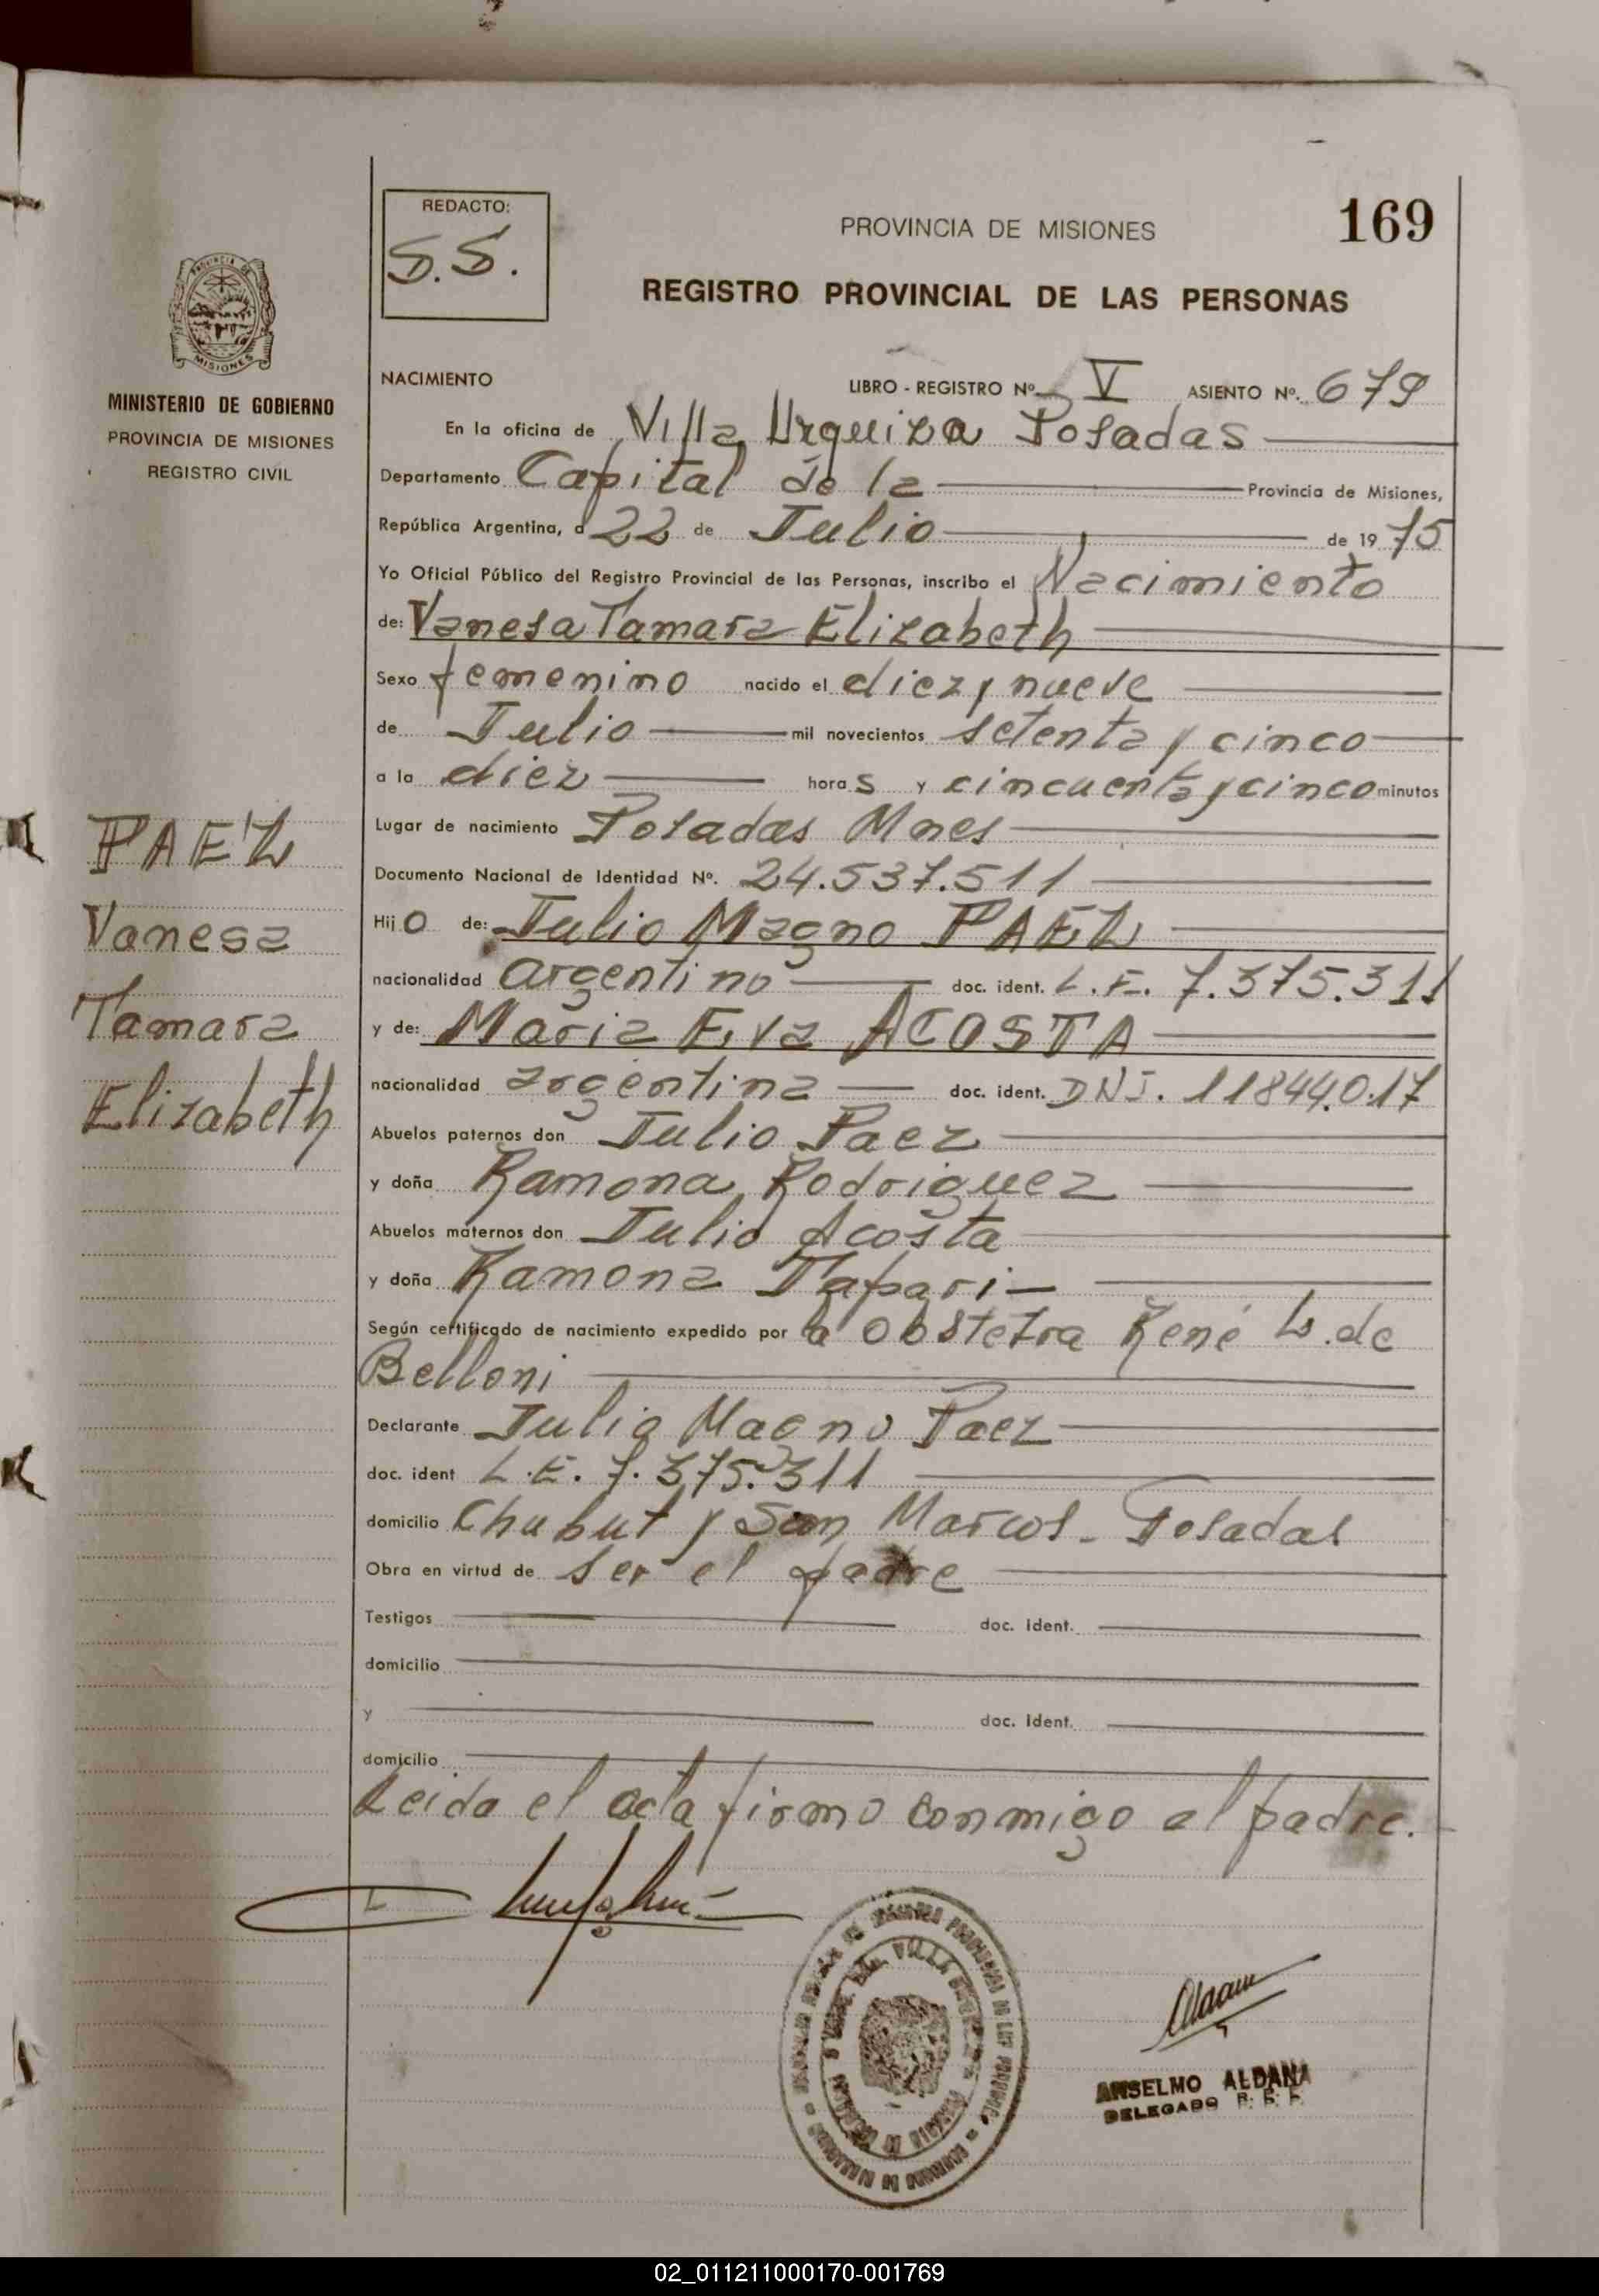 REDACTO:
S.S.
PROVINCIA DE MISIONES
169
REGISTRO PROVINCIAL DE LAS PERSONAS
MISIONES
MINISTERIO DE GOBIERNO
PROVINCIA DE MISIONES
REGISTRO CIVIL
NACIMIENTO LIBRO - REGISTRO Nº V ASIENTO Nº. 679
En la oficina de Villa Urquiza Posadas
Departamento Capital de la Provincia de Misiones,
República Argentina, a 22 de Julio de 1975
Yo Oficial Público del Registro Provincial de las Personas, inscribo el Nacimiento
de: Vanesa Tamara Elizabeth
Sexo femenino nacido el diez y nueve
de Julio mil novecientos setenta y cinco
a la diez horas y cincuenta y cinco minutos
Lugar de nacimiento Posadas Mnes
Documento Nacional de Identidad Nº. 24.537.511
Hijo de: Julio Magno PAEZ
nacionalidad argentino doc. ident. L.E. 7.375.311
y de: Maria Eva ACOSTA
nacionalidad argentina doc. ident. DNI. 11844.017
Abuelos paternos don Julio Paez
y doña Ramona Rodriguez
Abuelos maternos don Julio Acosta
y doña Ramona Tapari
Según certificado de nacimiento expedido por la obstetra René L. de
Belloni
Declarante Julio Magno Paez
doc. ident L.E. 7.375.311
domicilio Chubut y San Marcos - Posadas
Obra en virtud de ser el padre
Testigos doc. ident.
domicilio
y doc. ident.
domicilio
Leida el acta firmo conmigo el padre.
PAEZ
Vanesa
Tamara
Elizabeth
ANSELMO ALDANA
DELEGADO R. P. P.
02_011211000170-001769